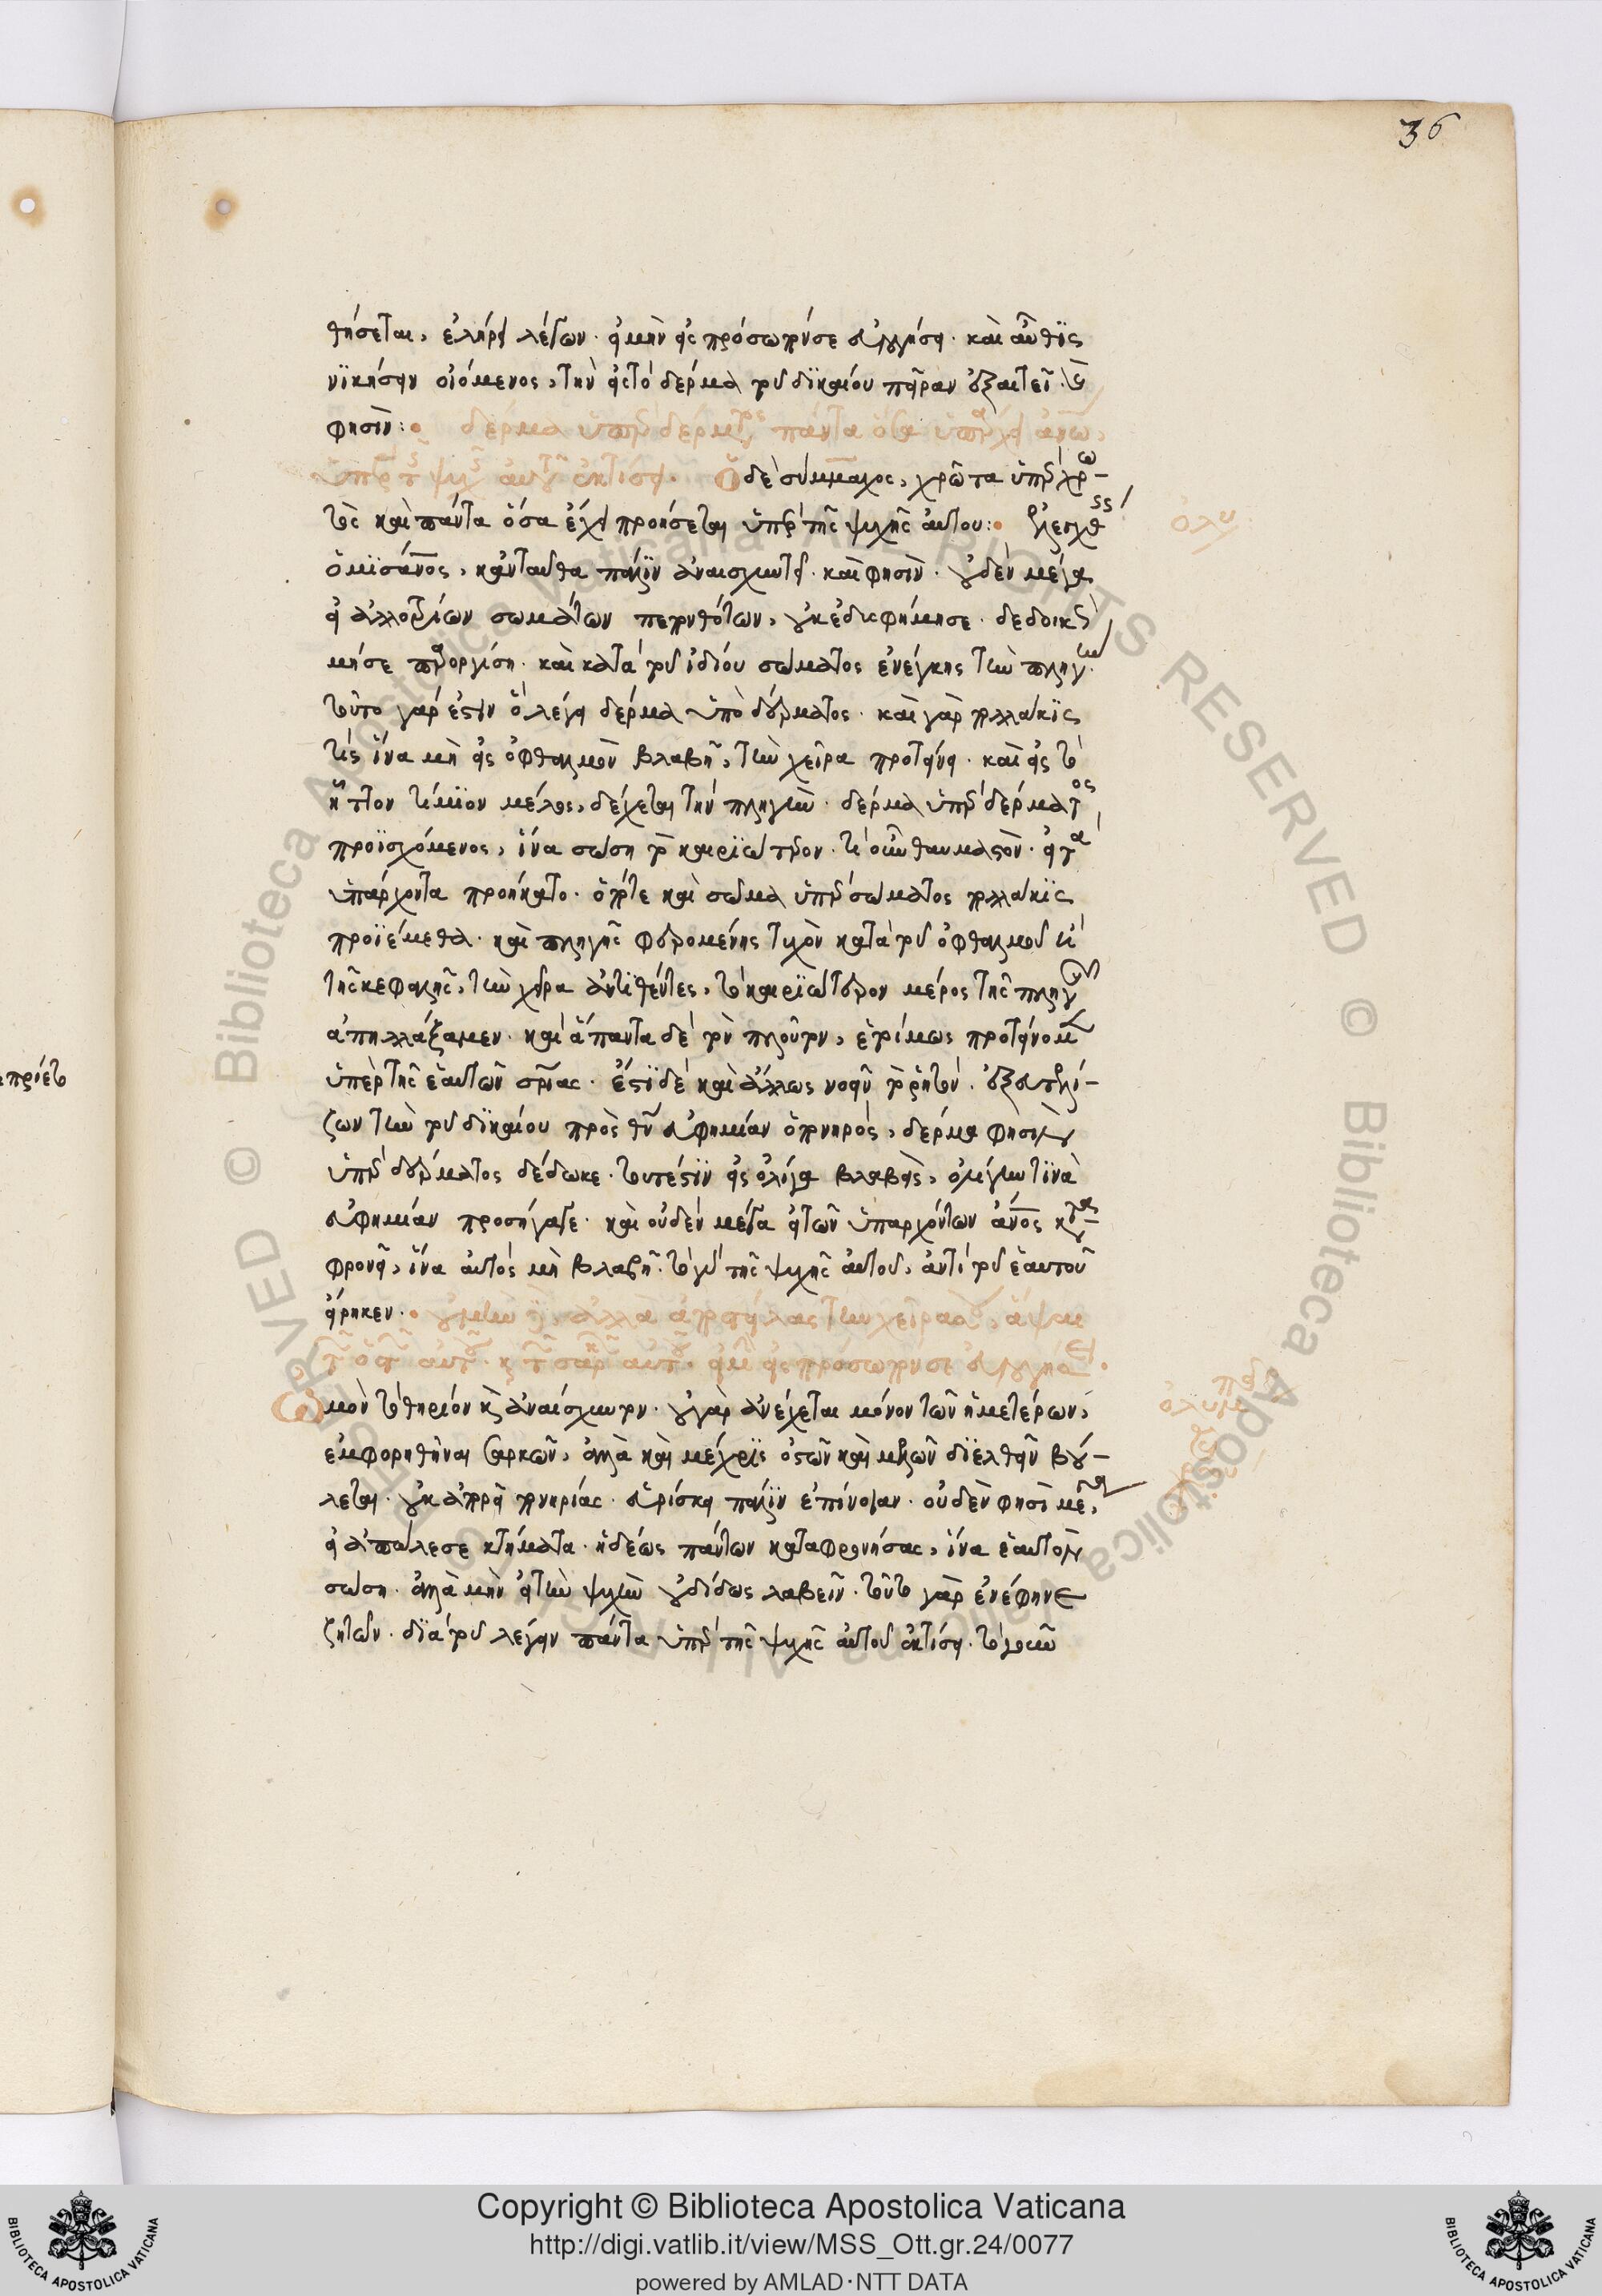 36
θήσεται, ἐλήρει λέγων· εἰ μὴν εἰς πρόσωπόν σε εὐλογήσει· καὶ αὖθις
νικήσειν οἰόμενος, τὴν εἰς τὸ δέρμα τοῦ δικαίου πεῖραν ἐξαιτεῖ·
φησίν: δέρμα ὑπὲρ δέρματος πάντα ὅσα ὑπάρχει ἀνῶ,
ὑπὲρ τῆς ψυχῆς αὐτοῦ ἐκτίσει. Ὁ δὲ σύμμαχος, χρῶτα ὑπὲρ χρω-
τὸς καὶ πάντα ὅσα ἔχει προήσεται ὑπὲρ τῆς ψυχῆς αὐτοῦ:
ὁ μισάνος, κἀνταῦθα πάλιν ἀναισχυντεῖ· καὶ φησίν· οὐδὲν μέγα
εἰ ἀλλοτρίων σωμάτων πεπονθότων, οὐκ ἐδυσφήμησε· δέδοικε
μή σε παροργίσῃ· καὶ κατὰ τοῦ ἰδίου σώματος ἐνέγκῃς τὴν πληγὴν·
τοῦτο γάρ ἐστιν ὃ λέγει δέρμα ὑπὸ δέρματος· καὶ γὰρ πολλάκις
τίς ἵνα μὴ εἰς ὀφθαλμὸν βλαβῇ, τὴν χεῖρα προτείνει· καὶ εἰς τὸ
ἧττον τίμιον μέλος, δέχεται τὴν πληγὴν· δέρμα ὑπὲρ δέρματος
προϊσχόμενος, ἵνα σώσῃ τὸ καιριώτερον· τί οὖν θαυμαστὸν· εἰ τὰ
ὑπάρχοντα προήκατο· ὁπότε καὶ σῶμα ὑπὲρ σώματος πολλάκις
προϊέμεθα· καὶ πληγῆς φερομένης τυχὸν κατὰ τοῦ ὀφθαλμοῦ ἢ
τῆς κεφαλῆς, τὴν χεῖρα ἀντιθέντες, τὸ καιριώτερον μέρος τῆς πληγῆς
ἀπηλλάξαμεν· καὶ ἅπαντα δὲ τὸν πλοῦτον, ἑτοίμως προτείνομεν
ὑπὲρ τῆς ἑαυτῶν σρίας· ἔστι δὲ καὶ ἄλλως νοεῖν τὸ ῥητόν· ἐξευτελί-
ζων τὴν τοῦ δικαίου πρὸς θν εὐφημίαν ὁ πονηρός, δέρμα φησὶν
ὑπὲρ δέρματος δέδωκε· τουτέστιν εἰς ὀλίγα βλαβεὶς, ὀλίγην τινὰ
εὐφημίαν προσήγαγε· καὶ οὐδὲν μέγα εἰ τῶν ὑπαρχόντων ἄνος κατα-
φρονεῖ, ἵνα αὐτὸς μὴ βλαβῇ· τὸ γὰρ τῆς ψυχῆς αὐτοῦ, ἀντὶ τοῦ ἑαυτοῦ
εἴρηκεν· οὐ μὴν δὲ, ἀλλὰ ἀποστείλας τὴν χεῖρά σου, ἅψαι
τῶν ὀστῶν αὐτοῦ· καὶ τῶν σαρκῶν αὐτοῦ· εἰ μὴν εἰς πρόσωπόν σε εὐλογήσει.
Ὠμὸν τὸ θηρίον καὶ ἀναίσχυντον· οὐ γὰρ ἀνέχεται μόνον τῶν ἡμετέρων,
ἐμφορηθῆναι σαρκῶν, ἀλλὰ καὶ μέχρις ὀστῶν καὶ μυελῶν διελθεῖν βού-
λεται· οὐκ ἀπορεῖ πονηρίας· εὑρίσκει πάλιν ἐπίνοιαν· οὐδὲν φησὶ μέγα,
εἰ ἀπώλεσε κτήματα· ἡδέως πάντων καταφρονήσας, ἵνα ἑαυτὸν
σώσῃ· ἀλλὰ μὴν εἰ τὴν ψυχὴν οὐ δίδως λαβεῖν· τοῦτο γὰρ ἐνέφηνε
ζητῶν· διὰ τοῦ λέγειν πάντα ὑπὲρ τῆς ψυχῆς αὐτοῦ ἐκτίσει· τὸ γοῦν
Copyright © Biblioteca Apostolica Vaticana
http://digi.vatlib.it/view/MSS_Ott.gr.24/0077
powered by AMLAD·NTT DATA
BIBLIOTECA APOSTOLICA VATICANA
BIBLIOTECA APOSTOLICA VATICANA